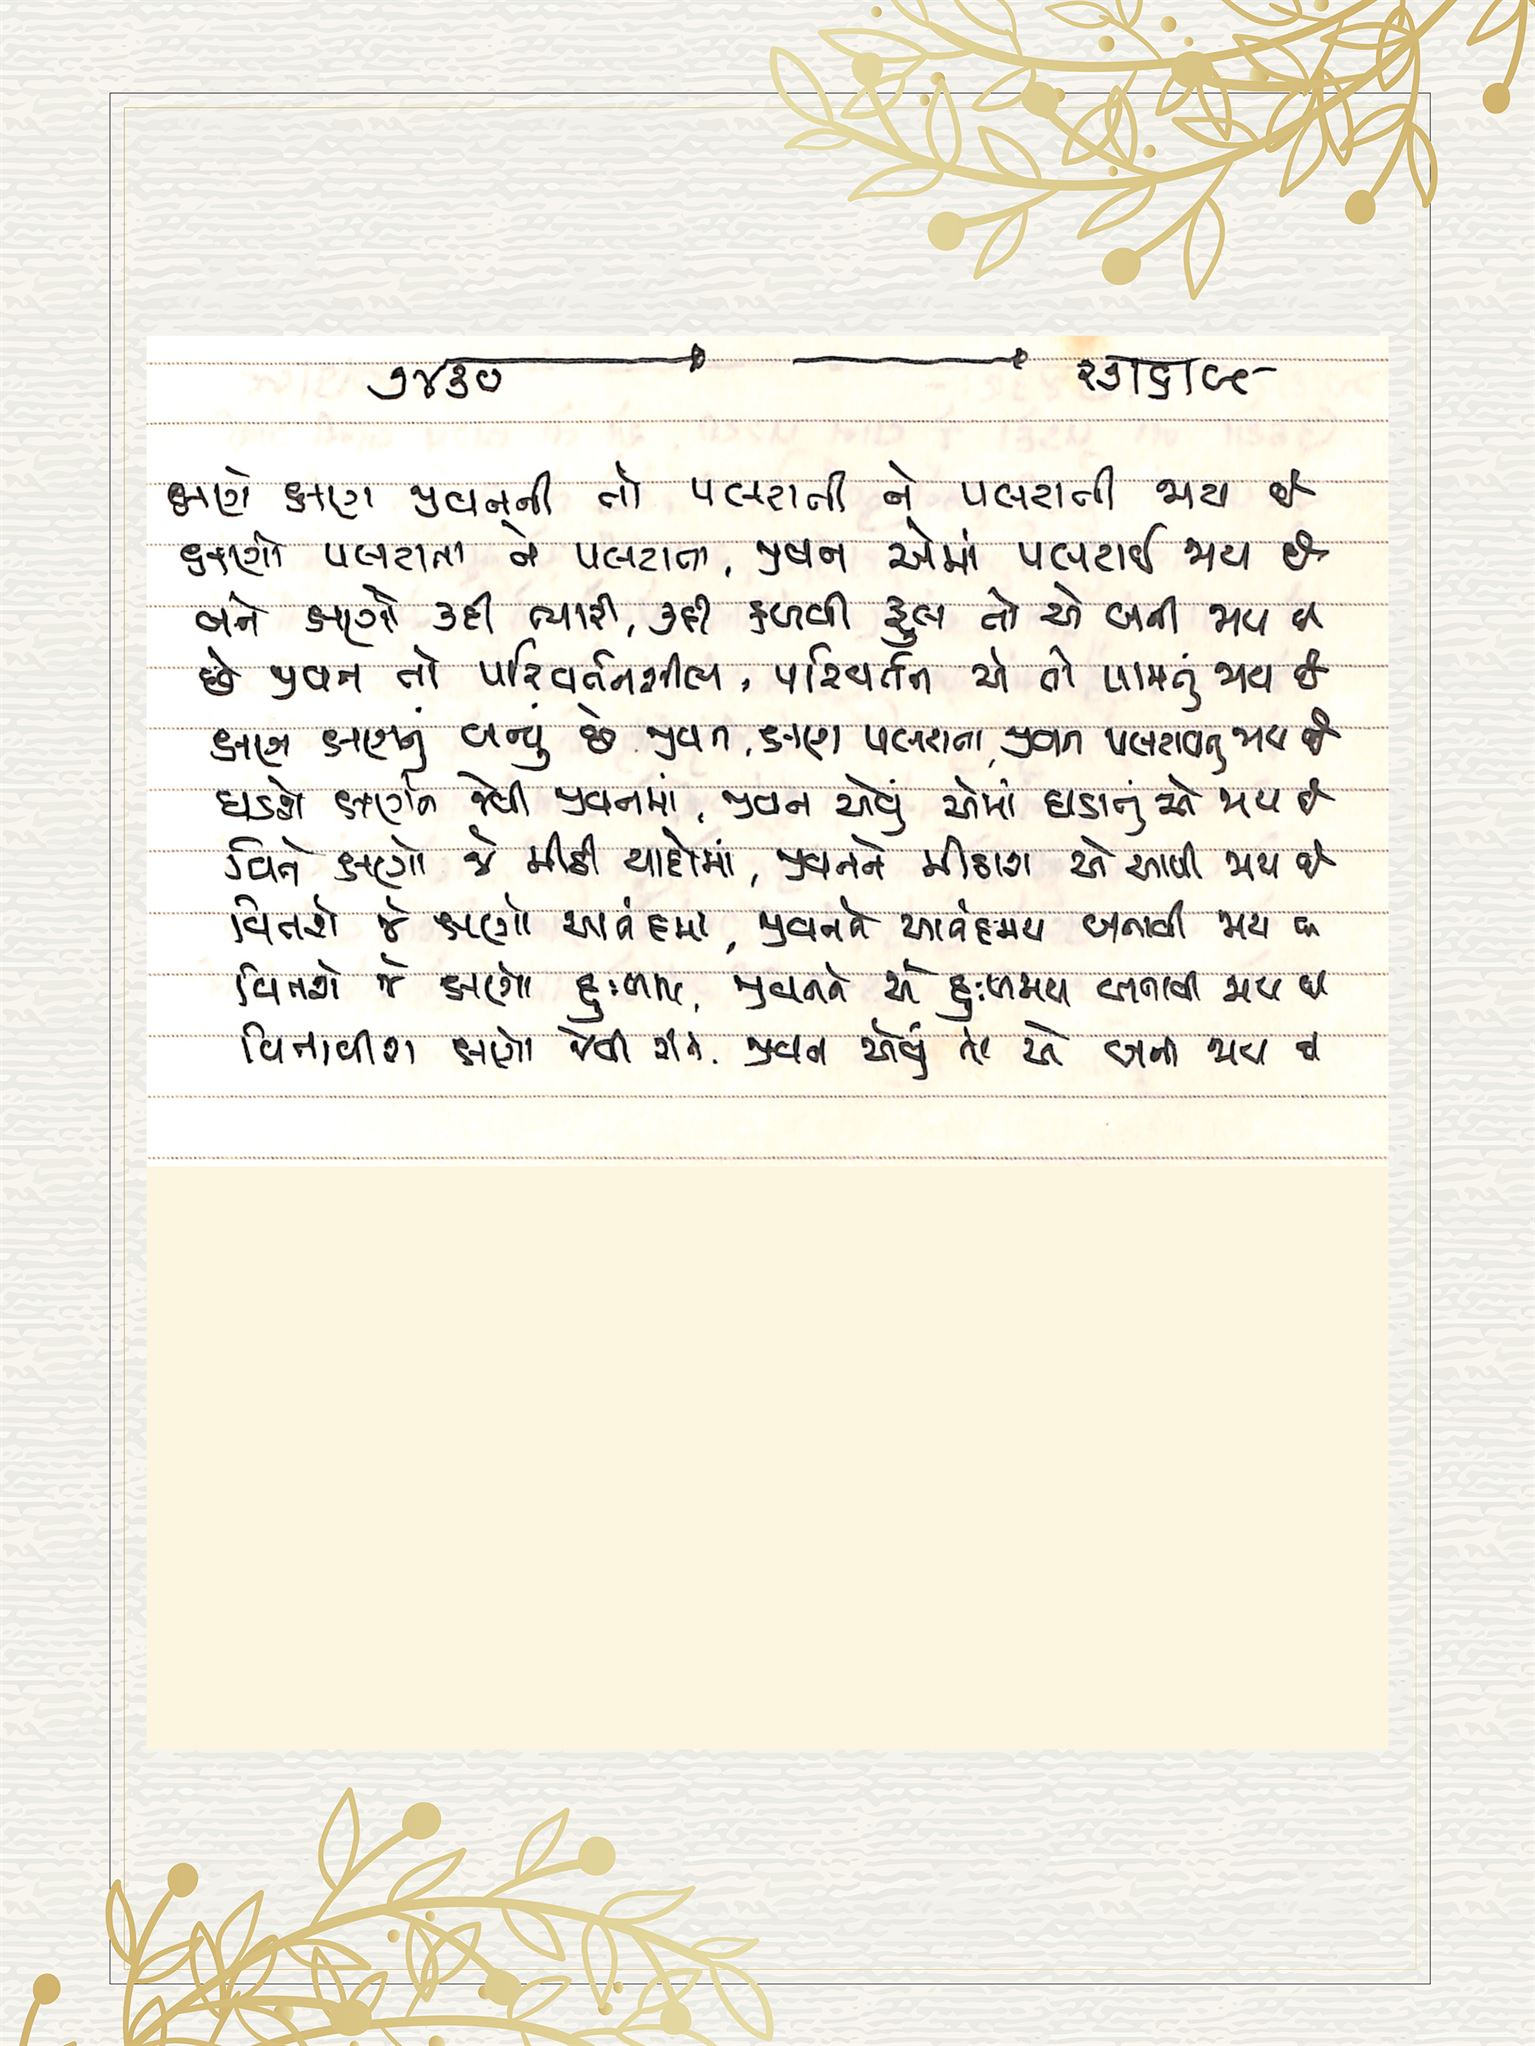 ૭૪૩૦
ક્ષણે ક્ષણ જીવનની તો પલટાતી ને પલટાતી જાય છે
ક્ષણો પલટાતા ને પલટાતા, જીવન એમાં પલટાઈ જાય છે
બને ક્ષણો રૂદી ત્યારી, રૂદી ફળવી ફુલ તો એ બની જાય છે
છે જીવન તો પરિવર્તનશીલ, પરિવર્તન એ તો પામતું જાય છે
ક્ષણ ક્ષણનું બન્યું છે જીવન, ક્ષણ પલટાતા, જીવન પલટાવતુ જાય છે
ઘડશે ક્ષણોને જેવી જીવનમાં, જીવન એવું એમાં ઘડાતું એ જાય છે
વિતે ક્ષણો જે મીઠી યાદોમાં, જીવનને મીઠાશ એ આપી જાય છે
વિતશે જે ક્ષણો આનંદમાં, જીવનને આનંદમય બનાવી જાય છે
વિતશે જે ક્ષણો દુઃખમાં, જીવનને એ દુઃખમય બનાવી જાય છે
વિતાવીશ ક્ષણો જેવી રીતે. જીવન એવું તો એ બની જાય છે